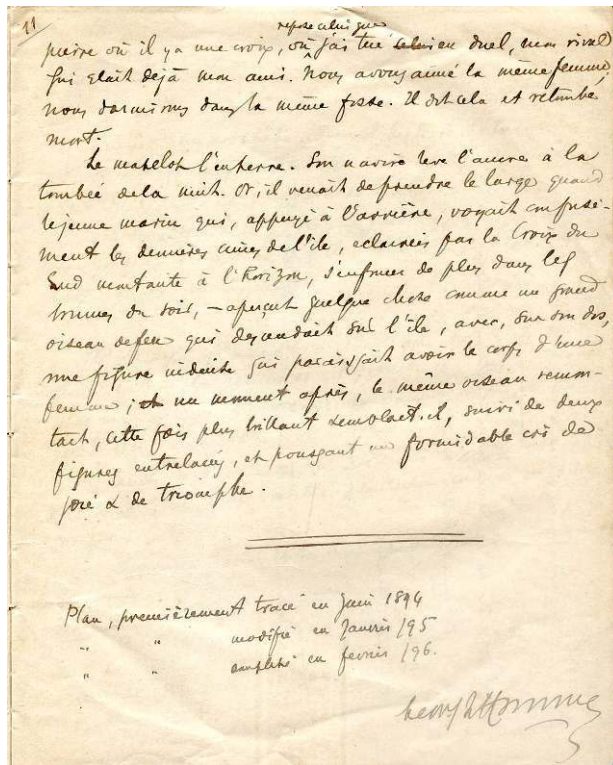 11
repose celui que
pierre où il y a une croix, où j'ai tué en duel, mon rival
qui était déjà mon ami. Nous avons aimé la même femme,
nous dormirons dans la même fosse. Il dit cela et retombe
mort.
Le matelot l'enterre. Son navire lève l'ancre à la
tombée de la nuit. Or, il venait de prendre le large quand
le jeune marin qui, appuyé à l'arrière, voyait confusé-
ment les dernières cimes de l'île, éclairées par la Croix du
Sud montante à l'horizon, s'enfoncer de plus dans les
brumes du soir, — aperçut quelque chose comme un grand
oiseau de feu qui descendait sur l'île, avec, sur son dos,
une figure indécise qui paraissait avoir le corps d'une
femme; et un moment après, le même oiseau remon-
tait, cette fois plus brillant semblait-il, suivi de deux
figures entrelacées, et poussant un formidable cri de
joie & de triomphe.
Plan, premièrement tracé en Juin 1894
" " modifié en Janvier /95
" " en février /96.